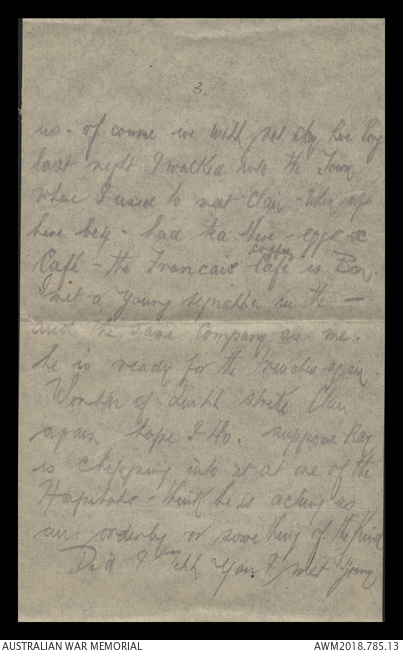 3.
us. Of course we will not stay here long
last night I walked into the Town
where I used to meet Clair - 
here - had tea there - eggs &
Coffee
Café - the Francais Café is Bon.
met a young signaller in the —
and the same Company as me.
he is ready for the trenches again.
Wonder if I will strike Clair
again hope I do. suppose Ray
is chopping into it at one of the
Hospitals - think he is acting as
an orderly or something of the kind
Did I tell you I met young
AUSTRALIAN WAR MEMORIAL
AWM2018.785.13